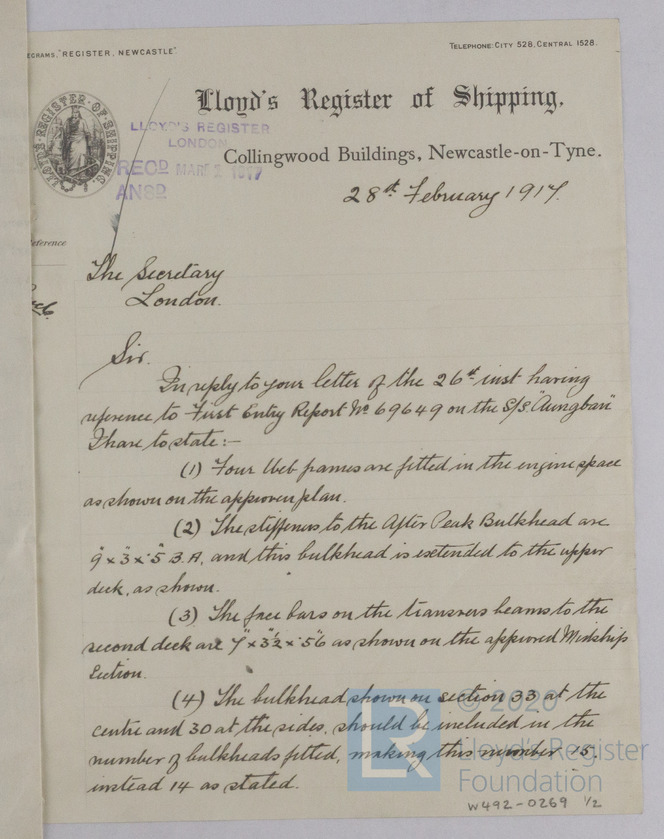 EGRAMS, "REGISTER, NEWCASTLE".
TELEPHONE: CITY 528, CENTRAL 1528.
Lloyd's Register of Shipping,
LLOYD'S REGISTER OF SHIPPING.
LLOYD'S REGISTER
LONDON
RECD MAR 2 1917
ANSD
Collingwood Buildings, Newcastle-on-Tyne.
28th February 1917.
eference
The Secretary
London.
Sir.
In reply to your letter of the 26th inst having
reference to First Entry Report No 69649 on the S/S. "Aungban"
I have to state:-
(1) Four Web frames are fitted in the engine space
as shown on the approven plan.
(2) The stiffeners to the After Peak Bulkhead are
9" x 3" x .5 B.A, and this bulkhead is extended to the upper
deck, as shown.
(3) The face bars on the transvers beams to the
second deck are 7" x 3½" x .56 as shown on the approved Midship
Section.
(4) The bulkhead shown on section 33 at the
centre and 30 at the sides, should be included in the
number of bulkheads fitted, making this number 15.
instead 14 as stated.
LR © 2020
Lloyd's Register
Foundation
W492-0269 1/2